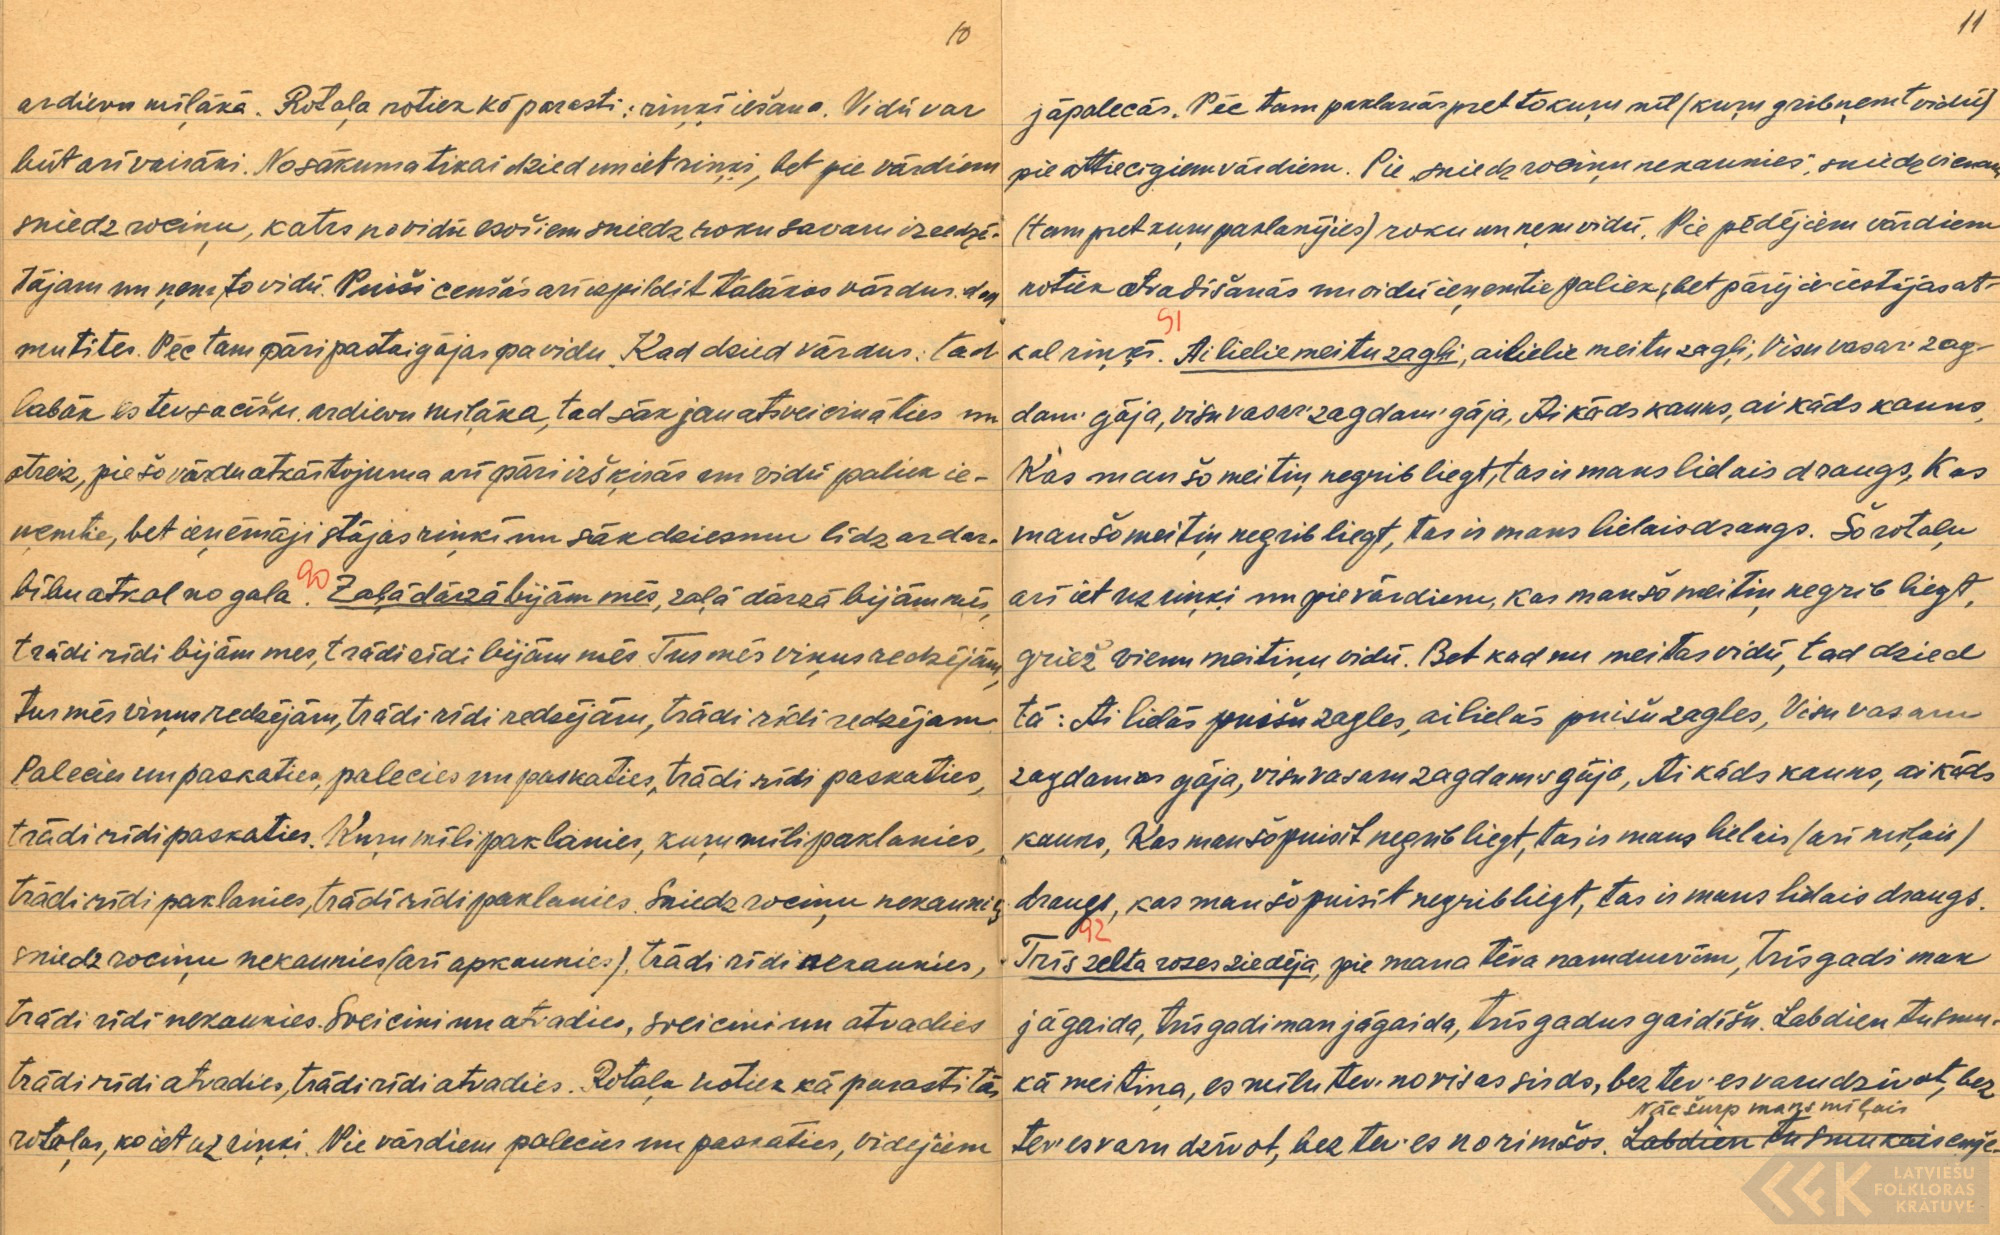 10
ardievu mīļākā. Rotaļa notiek kō parasti: riņķī iešana. Vidū var
būt arī vairāki. No sākuma tikai dzied un iet riņķī, bet pie vārdiem
sniedz rociņu, katrs no vidū esošiem sniedz roku savam izredzē-
tājam un ņem to vidū. Puiši cenšās arī izpildīt tālākos vārdus: dod
mutītes. Pēc tam pāri pastaigājas pa vidu. Kad dzied vārdus: tad
labāk es tev sacīšu ardievu mīļāka, tad sāk jau atsveicināties un
otreiz, pie šo vārdu atkārtojuma arī pāri izšķirās un vidū paliek ie-
ņemtie, bet ieņēmāji stājas riņķī un sāk dziesmu līdz ar dar-
bību atkal no gala. 90 Zaļā dārzā bijām mēs, zaļā dārzā bijām mēs,
trādi rīdi bijām mes, trādi rīdi bijām mēs. Tur mēs viņus redzējām,
tur mēs viņus redzējām, trādi rīdi redzējām, trādi rīdi redzējam.
Palecies un paskaties, palecies un paskaties, trādi rīdi paskaties,
trādi rīdi paskaties. Kuŗu mīli paklanies, kuŗu mīli paklanies,
trādi rīdi paklanies, trādi rīdi paklanies. Sniedz rociņu nekaunies,
sniedz rociņu nekaunies (arī apkaunies), trādi rīdi nekaunies,
trādi rīdi nekaunies. Sveicini un atvadies, sveicini un atvadies
trādi rīdi atvadies, trādi rīdi atvadies. Rotaļa notiek kā parasti tās
rotaļas, ko iet uz riņķi. Pie vārdiem palecies un paskaties, vidējiem
11
jāpalecās. Pēc tam paklanās pret to kuŗu mīl (kuŗu grib ņemt vidū)
pie attiecīgiem vārdiem. Pie "sniedz rociņu nekaunies", sniedz vienam
(tam pret kuŗu paklanījies) roku un ņem vidū. Pie pēdējiem vārdiem
notiek atvadīšanās un vidū ieņemtie paliek, bet pārējie iestājas at-
kal riņķī. 91 Ai lielie meitu zagļi, ai lielie meitu zagļi, Visu vasar' zag-
dam' gāja, visu vasar' zagdam' gāja, Ai kāds kauns, ai kāds kauns,
Kas man šo meitiņ negrib liegt, tas ir mans lielais draugs, Kas
man šo meitiņ negrib liegt, tas ir mans lielais draugs. Šo rotaļu
arī iet uz riņķi un pie vārdiem, kas man šo meitiņ negrib liegt,
griež vienu meitiņu vidū. Bet kad nu meitas vidū, tad dzied
tā: Ai lielās puišu zagles, ai lielās puišu zagles, Visu vasaru
zagdamas gāja, visu vasaru zagdamas gāja, Ai kāds kauns, ai kāds
kauns, Kas man šo puisīt negrib liegt, tas ir mans lielais (arī mīļais)
draugs, kas man šo puisīt negrib liegt, tas ir mans lielais draugs.
92 Trīs zelta rozes ziedēja, pie mana tēva namdurvīm, Trīs gadi man
jāgaida, trīs gadi man jāgaida, trīs gadus gaidīšu. Labdien tu smu-
kā meitiņa, es mīlu tev' no visas sirds, bez tev' es varu dzīvot, bez
Nāc šurp mans mīļais
tev' es varu dzīvot, bez tev' es norimšos. Labdien tu smukais enģe-
LATVIEŠU
FOLKLORAS
KRĀTUVE